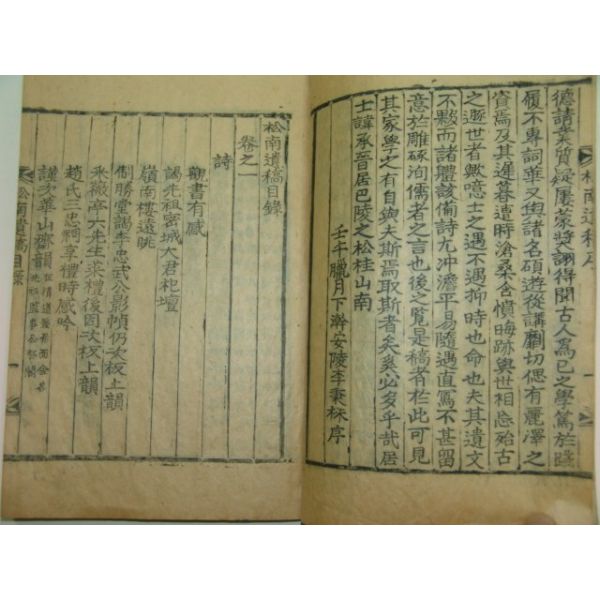 德請業質疑屢蒙獎詡得聞古人爲己之學篤於踐
履不專詞華又與諸名碩遊從講劘切偲有麗澤之
資焉及其遲暮遭時滄桑含憤晦跡與世相忘殆古
之遯世者歟噫士之遇不遇抑時也命也夫其遺文
不夥而諸體該備詩尤冲澹平易隨遇直寫不甚留
意於雕琢洵儒者之言也後之覽是稿者於此可見
其家學之有自與夫斯焉取斯者矣奚必多乎哉居
士諱承晉居巴陵之松桂山南
壬午臘月下澣安陵李秉 序
松南遺稿序
一
松南遺稿目錄
卷之一
詩
觀書有感
謁先祖密城大君祀壇
嶺南樓遠眺
制勝堂謁李忠武公影幀仍次板上韻
采薇亭六先生菜禮後因次板上韻
趙氏三忠祠享禮時感吟
謹次華山 韻
松南遺稿目錄
一